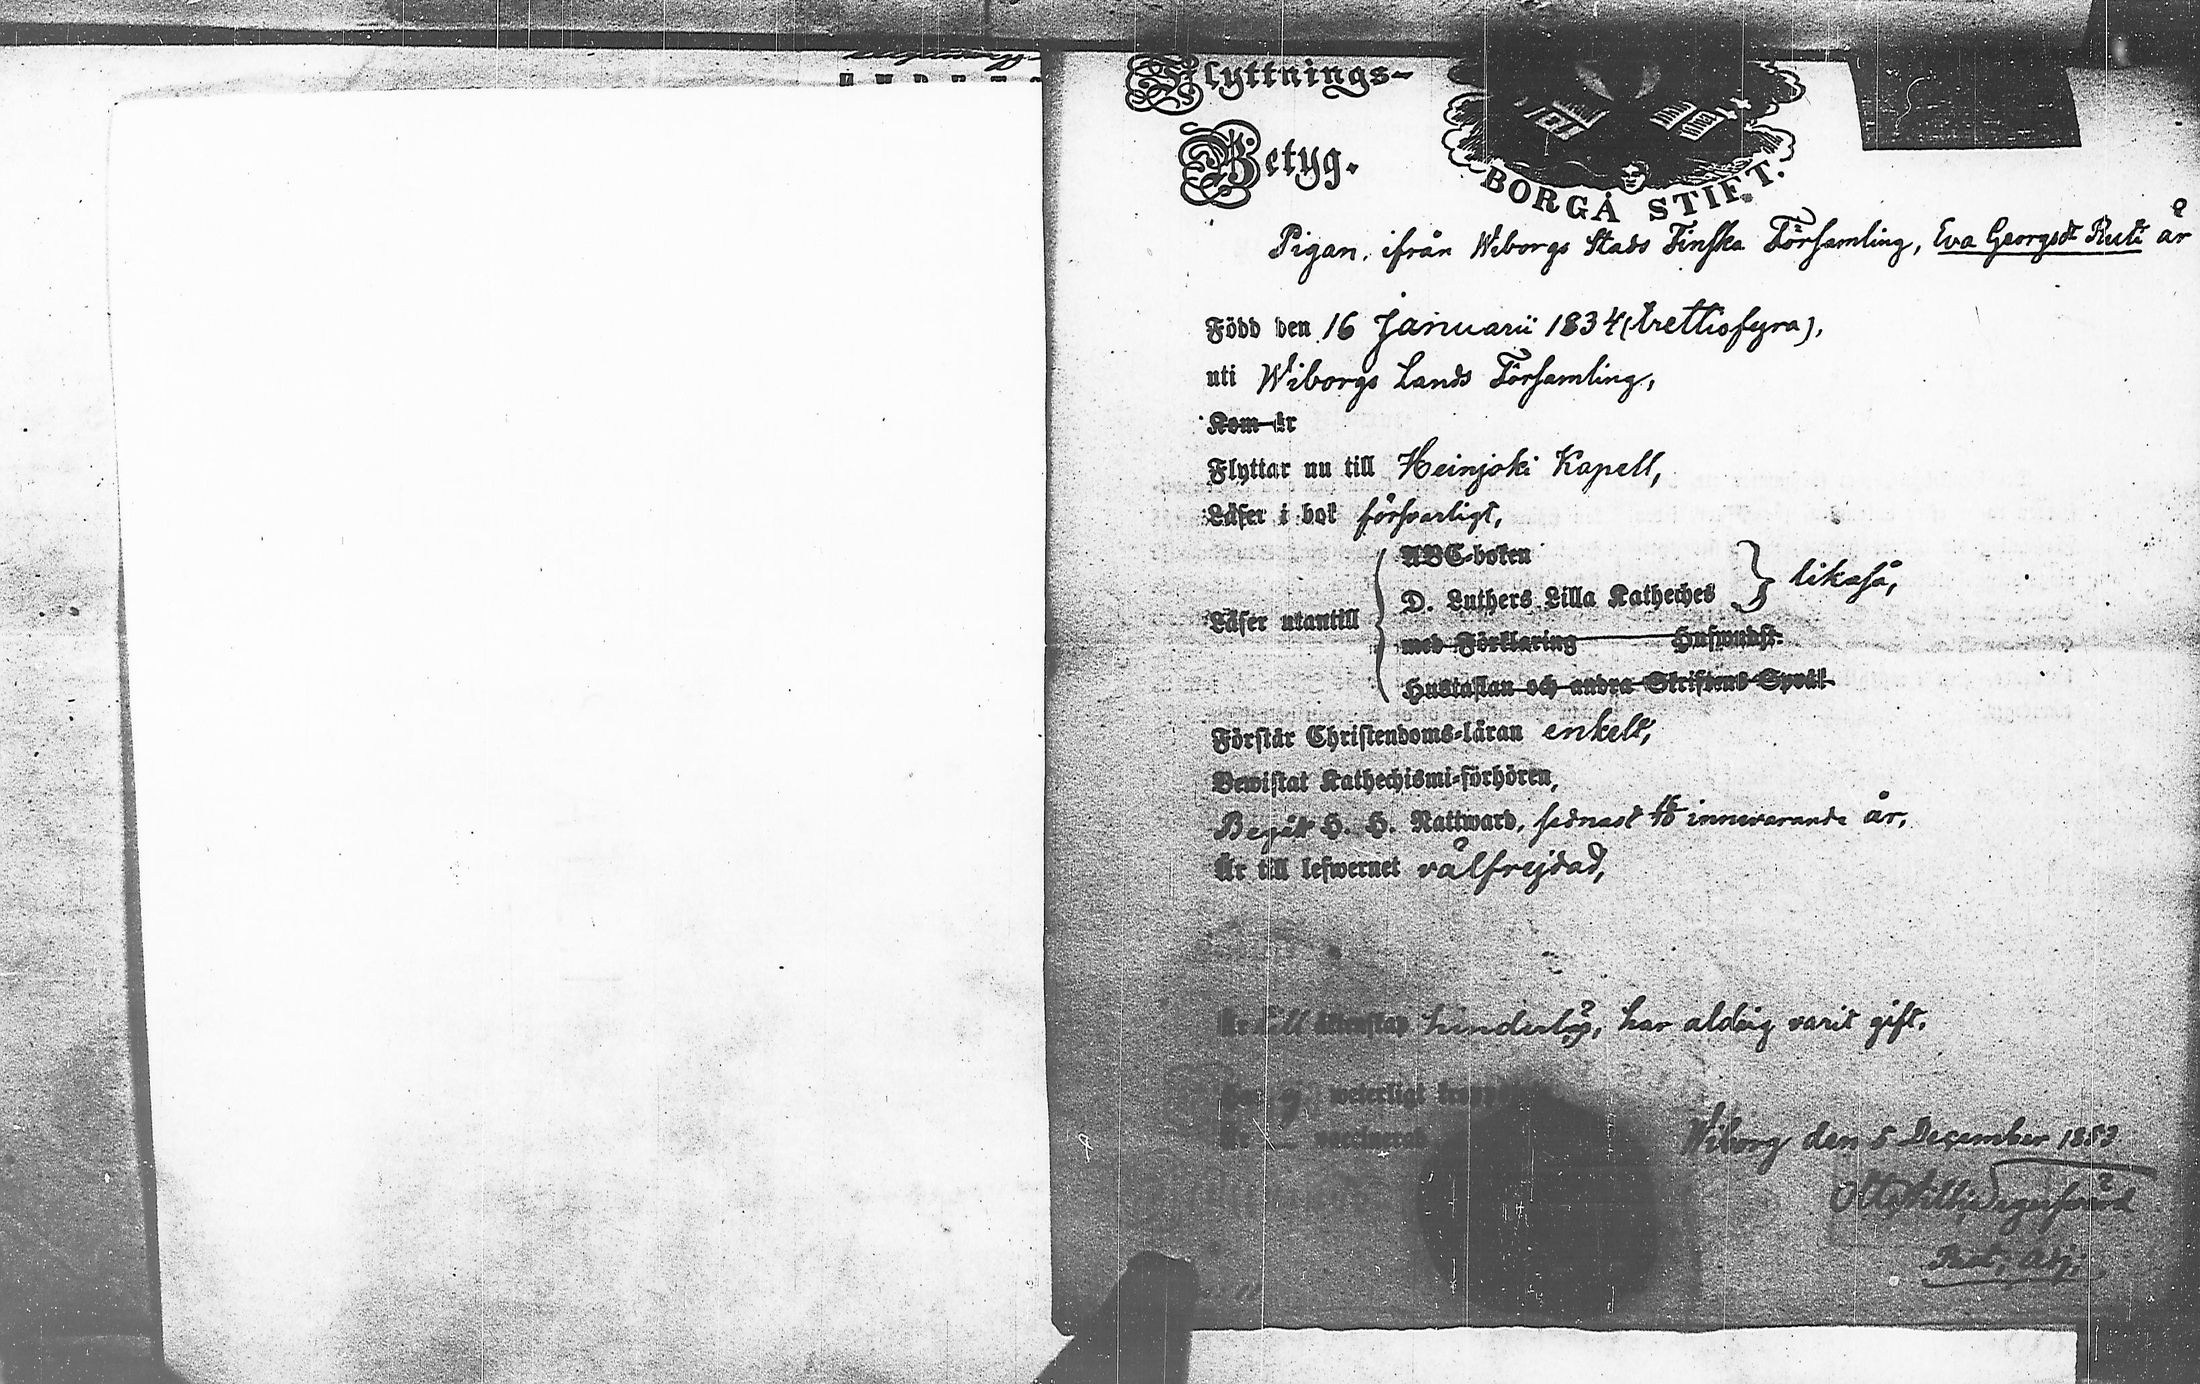 Flyttnings-
Betyg.
BORGÅ STIFT.
Pigan, ifrån Wiborgs Stads Finska Församling, Eva Georgsdr Ruti är
Född den 16 Januarii 1834 (trettiofyra),
uti Wiborgs Lands Församling,
Kom år
Flyttar nu till Heinjoki Kapell,
Läser i bok försvarligt,
ABC-boken
D. Luthers Lilla Katheches } likaså,
Läser utantill
med Förklaring
Hustaflan och andra Skriftens Språk
Förstår Christendoms-läran enkelt,
Bewistat Kathechismi-förhören,
Begått H. H. Nattward, sednast innevarande år,
Är till lefwernet välfrejdad,
Är till äktenskap hinderlös, har aldrig varit gift.
weterligt
Wiborg den 5 December 1853
Past. Adj.